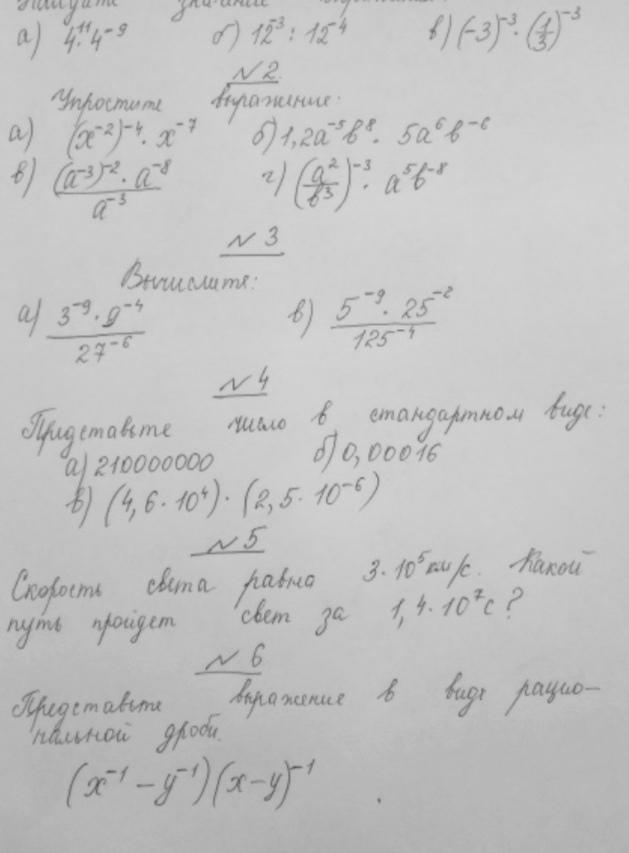 Найдите значение
а) 4¹¹·4⁻⁹ б) 12⁻³ : 12⁻⁴ в) (-3)⁻³·(1/3)⁻³
№2.
Упростите выражение:
а) (x⁻²)⁻⁴·x⁻⁷ б) 1,2a⁻⁵b⁸·5a⁶b⁻⁶
в) ((a⁻³)⁻²·a⁻⁸)/a⁻³ г) (a²/b³)⁻³·a⁵b⁻⁸
№3
Вычислите:
а) (3⁻⁹·9⁻⁴)/27⁻⁶ в) (5⁻⁹·25⁻²)/125⁻⁴
№4
Представьте число в стандартном виде:
а) 210000000 б) 0,00016
в) (4,6·10⁴)·(2,5·10⁻⁶)
№5
Скорость света равна 3·10⁵км/с. Какой
путь пройдет свет за 1,4·10⁷с?
№6
Представьте выражение в виде рацио-
нальной дроби.
(x⁻¹-y⁻¹)(x-y)⁻¹